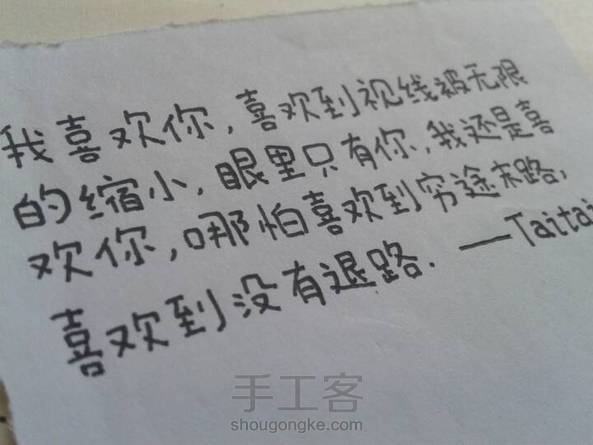 我喜欢你,喜欢到视线被无限
的缩小,眼里只有你,我还是喜
欢你,哪怕喜欢到穷途末路,
喜欢到没有退路. —Taitai
手工客
shougongke.com